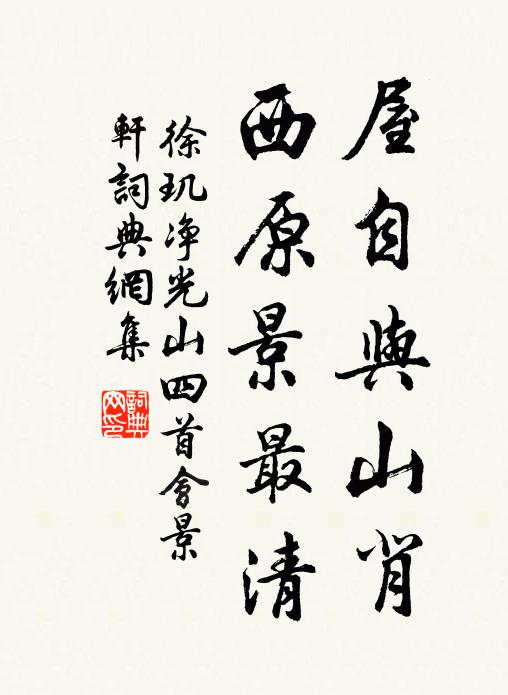 屋自與山背
西原景最清
徐玑淨光山四首會景
軒詞典網集
詞典
网印